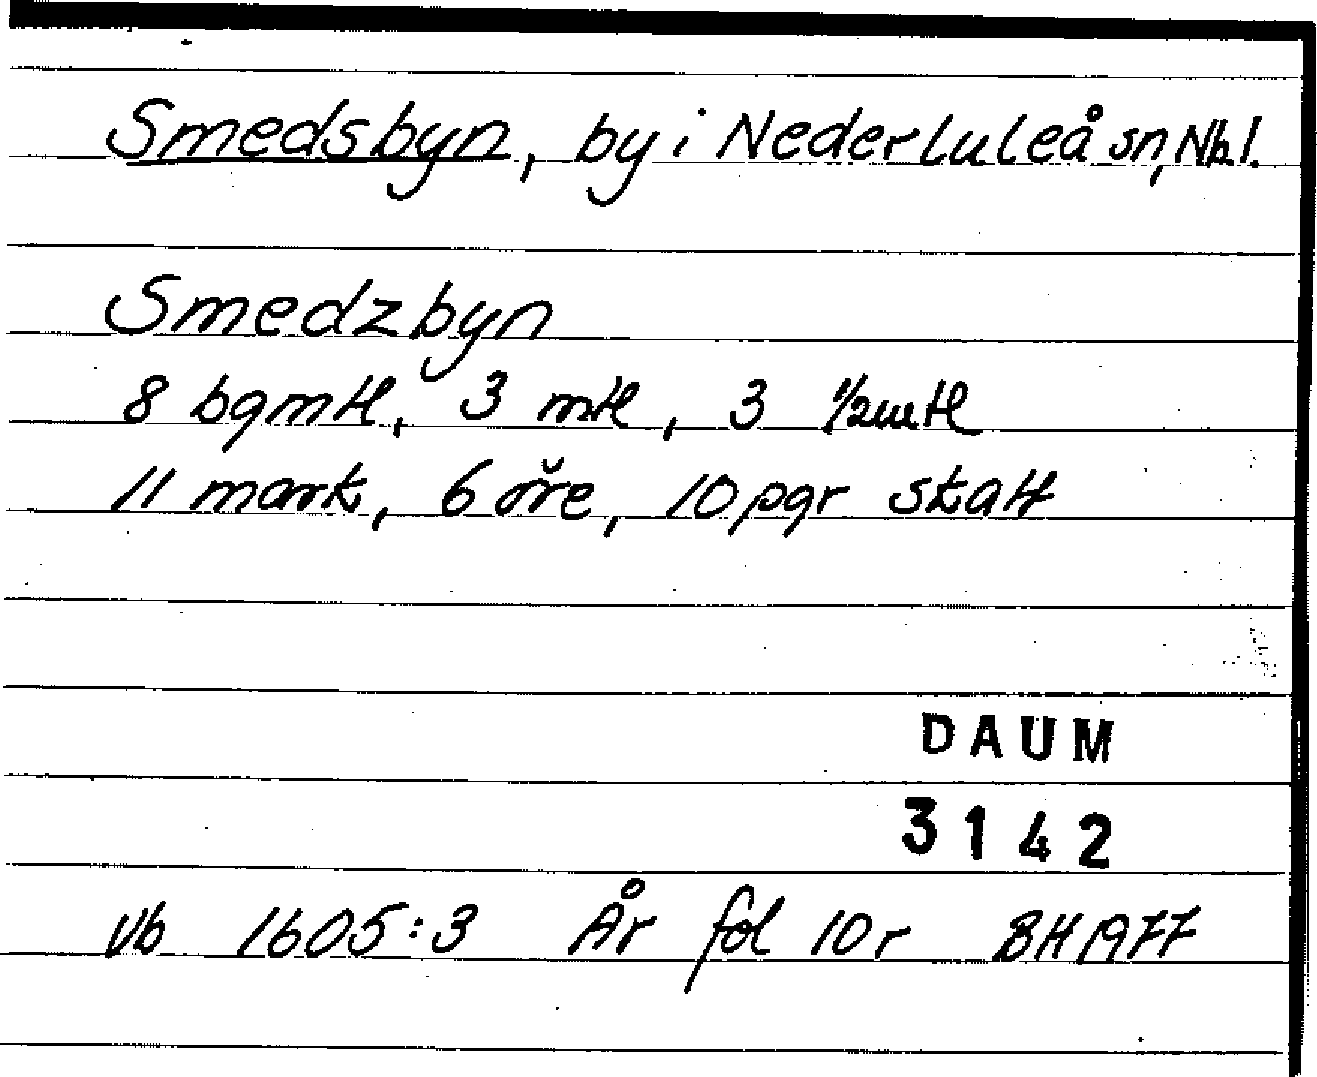 Smedsbyn, by i Nederluleå sn, Nb l.
Smedzbyn
8 bgmtl, 3 mtl, 3 1/2mtl
11 mark, 6 öre, 10 pgr skatt
DAUM
3142
Vb 1605:3 År fol 10 r BH 1977